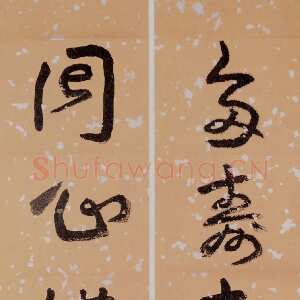 多寿
同心
Shufawang.CN